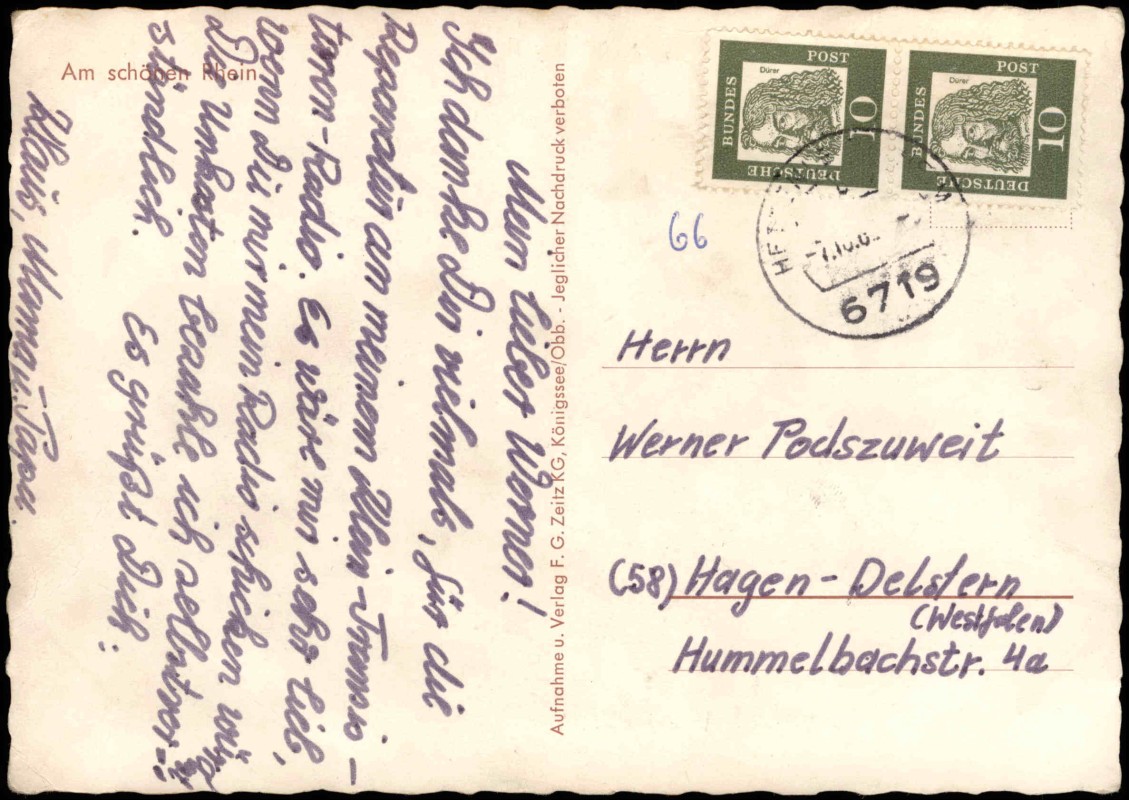 Am schönen Rhein
Mein lieber Werner!
Ich danke Dir vielmals, für die
Reparatur an meinem Klein-Transis-
toron-Radio. Es wäre mir sehr lieb,
wenn Du mir mein Radio schicken würdest
Die Unkosten bezahle ich selbstver-
ständlich.
Es grüßt Dich:
Klaus, Mama u. Papa.
Aufnahme u. Verlag F. G. Zeitz KG, Königssee/Obb. - Jeglicher Nachdruck verboten
DEUTSCHE BUNDESPOST
Dürer
10
DEUTSCHE BUNDESPOST
Dürer
10
6719
66
Herrn
Werner Podszuweit
(58) Hagen-Delstern
(Westfalen)
Hummelbachstr. 4a